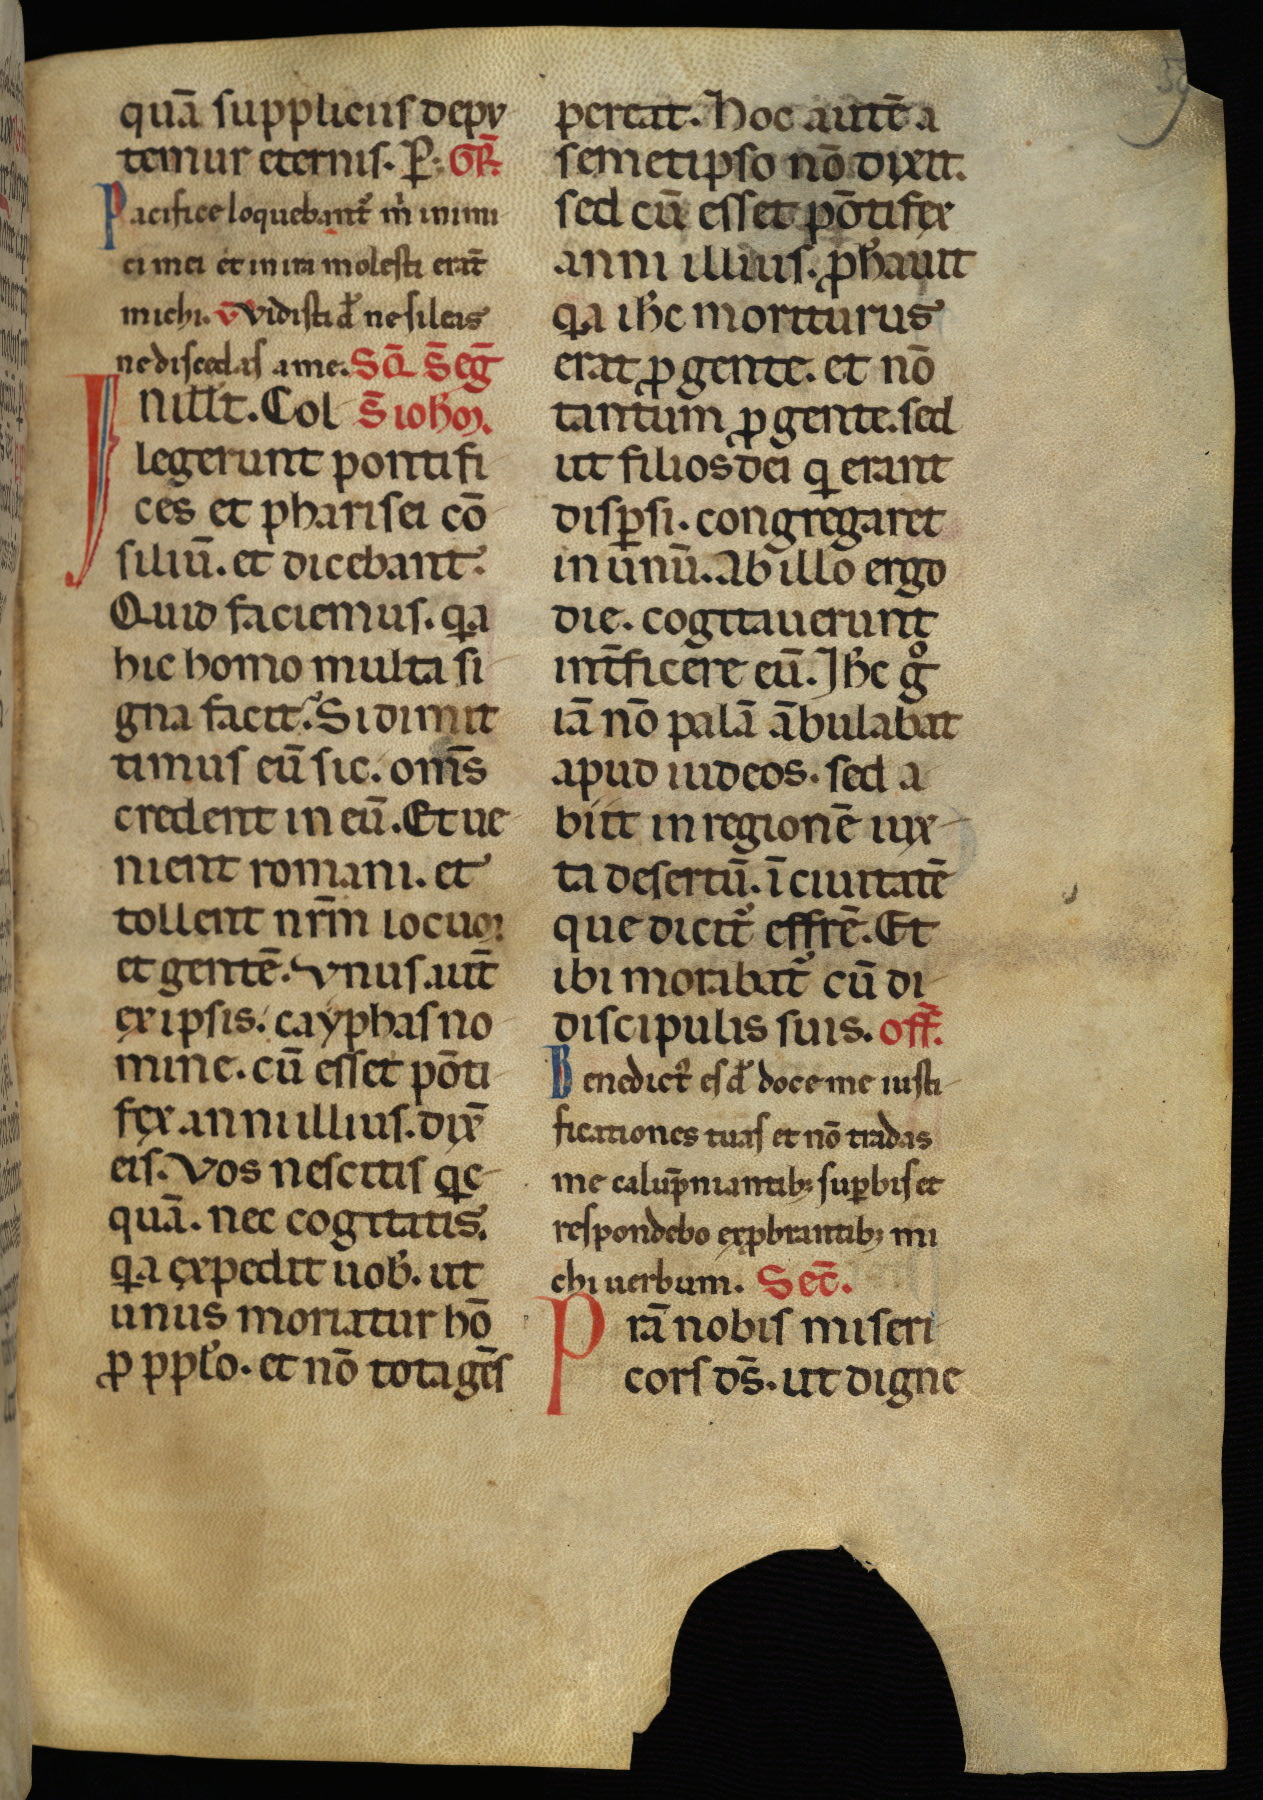 59
quā suppliciis depu
temur eternis. P̱. GR̄.
Pacifice loquebant᷑ m̍ inimi
ci mei et in ira molesti erāt
michi. V̄ Vidisti d̄ne sileas
ne discedas a me. SQ̄ S̄ EḠ
Nill̄t. Col S̄ ioh̄m.
legerunt pontifi
ces et pharisei cō
siliū. et dicebant.
Quid faciemus. qa
hic homo multa si
gna facit. Si dimit
timus eū sic. om̄s
credent in eū. Et ue
nient romani. et
tollent nr̄m locum
et gentē. Vnus aut̄
ex ipsis. cayphas no
mine. cū esset pōti
fex anni illius. dix̄
eis. Vos nescitis qc
quā. nec cogitatis.
qa expedit uob̄. ut
unus moriatur hō
ꝓ ppło. et nō tota gēs
pereat. Hoc autē a
semetipso nō dixit.
sed cū esset pōtifex
anni illius. ꝓphauit
qa ih̄c moriturus
erat ꝓ gente. et nō
tantum ꝓ gente. sed
ut filios dei q erant
disꝑsi. congregaret
in unū. Ab illo ergo
die. cogitauerunt
int̄ficere eū. Ih̄c gͦ
iā nō palā ābulabat
apud iudeos. sed a
biit in regionē iux
ta desertū. ī ciuitatē
que dicit᷑ effrē. Et
ibi morabat᷑ cū di
discipulis suis. off̄.
Benedict᷒ es d̄ doce me iusti
ficationes tuas et nō tradas
me calūpniantibꝫ suꝑbis et
respondebo exꝓbrantibꝫ mi
chi uerbum. Sec̄.
Prā nobis miseri
cors ds̄. ut digne